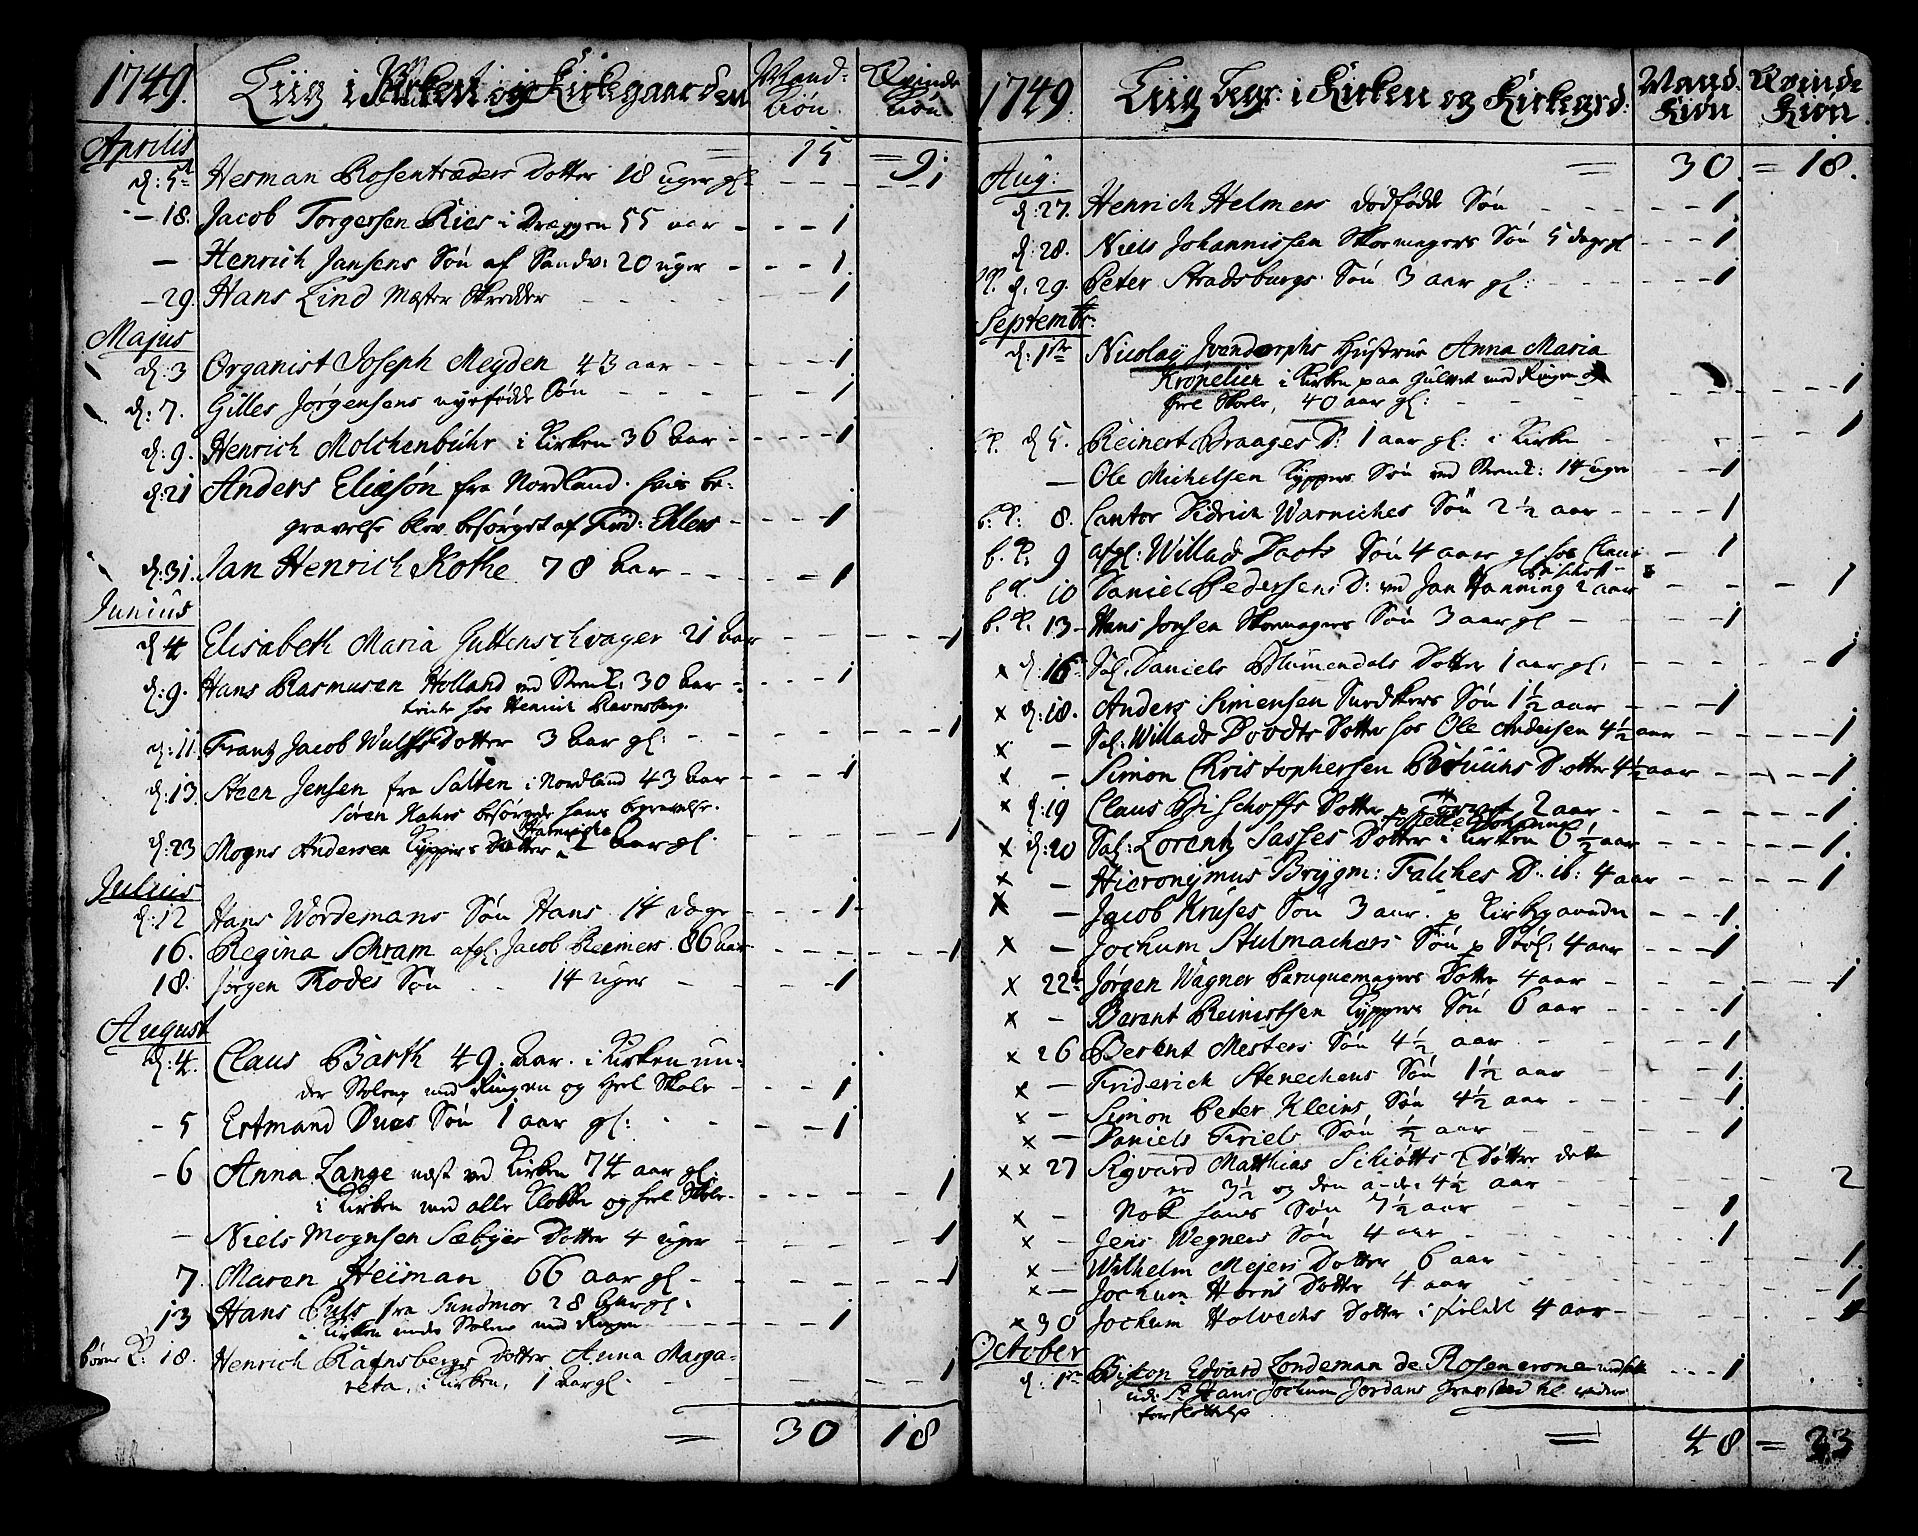 1749. Liig i Kirken og Kirkegaarden Mand- Kiøn. Qvinde Kiøn
Aprilis = 15 = 9.
d: 5t Herman Rosentræders Dotter 18 uger gl: 1
- 18. Jacob Torgersen Ries i Dræggen 55 aar 1
- Henrich Jansens Søn af Sandv: 20 uger 1
- 29. Hans Lind Mæster Skredder 1
Majus
d: 3 Organist Joseph Meyden 43 aar 1
d: 7. Gilles Jørgensens nyefødde Søn 1
d: 9. Henrich Molchenbuhr i Kirken 36 aar 1
d: 21 Anders Eliasøn fra Nordland. hvis be-
gravelse blev besørget af Frid: Ehlers 1
d: 31. Jan Henrich Kothe 78 aar 1
Junius
d 4 Elisabeth Maria Guttenschvager 21 aar 1
d: 9. Hans Rasmusen Holland ved 30 aar 1
tiente hos Henrich Ravensberg.
d: 11. Frantz Jacob Wulffs Dotter 3 aar gl: 1
d: 13 Steen Jensen fra Salten i Nordland 43 aar 1
Søren Kahrs besørgede hans begravelse.
d: 23 Mogns Andersen Kyppers Dotter aar gl. 1
Julius
d: 12 Hans Wordemans Søn Hans 14 dage 1
16. Regina Schram afgl: Jacob Reimers 86 aar 1
18. Jørgen Trodes Søn 14 uger 1
August
d: 4. Claus Barth 49. aar. i Kirken un-
der Stolene med Ringen og heel Skole 1
- 5 Ertmand Dues Søn 1 aar gl: 1
- 6 Anna Lange næst ved Kirken 74 aar gl:
i Kirken med alle Klokker og heel Skole 1
- Niels Mognsen Sæbyes Dotter 4 uger 1
7. Maren Heiman 66 aar gl 1
13 Hans Puls fra Sundmør 28 aar gl:
i Kirken under Stolene med Ringen 1
18. Henrich Rafnsbergs Dotter Anna Marga-
reta, i Kirken, 1 aar gl: 1
= 30 18
1749. Liig begr: i Kirken og Kirkegrd: Mand Kiøn Qvinde Kiøn
Aug: = 30. = 18.
d: 27. Henrich Helmers dødfødde Søn 1
d: 28. Niels Johannissen Skomagers Søn 5 dage gl 1
d: 29. Peter Stradsburgs Søn 3 aar gl: 1
Septembr:
d: 1ste Nicolay Jvendorphs Hustrue Anna Maria
Kropelien i Kirken paa Gulvet med Ringen og
heel Skole, 40 aar gl: 1
d 5. Reinert Braages D: 1 aar gl: i Kirken 1
- Ole Michelsen Kyppers Søn ved 14 uger 1
8. Cantor Didrich Warniches Søn 2½ aar 1
9 afgl: Willads Doots Søn 4 aar gl hos Claus Bischoff 1
10 Daniel Pedersens D: ved Jan Hanning 2 aar 1
13 - Hans Jonsen Skomagers Søn 3 aar gl 1
x d: 16 Sal: Daniels Blumendals Dotter 1 aar gl: 1
x d: 18. Anders Simensen Sundkers Søn 1½ aar 1
x - Sal: Willads Doodts Dotter hos Ole Andersen 4½ aar 1
x - Simon Christophersen Dotter 4½ aar 1
x d: 19 Claus Bischoffs Dotter 2 aar 1
x d: 20 Sal: Lorentz Sasses Dotter i Kirken 6½ aar 1
x - Hieronymus Brygm: Falches D: ib: 4 aar 1
x - Jacob Kruses Søn 3 aar. p Kirkegaarden 1
x - Jochum Stulmachers Søn 4 aar 1
x 22 Jørgen Wagner Peruquemagers Dotter 4 aar 1
x - Berent Reinertsen Kyppers Søn 6 aar 1
x 26 Berent Mesters Søn 4½ aar 1
x - Friderich Stenechens Søn 1½ aar 1
x - Simon Peter Kleins Søn 4½ aar 1
x - Daniels Friels Søn ½ aar 1
x x 27 Sigvard Matthias Schiøtts 2 Døttre dette
en 3½ og den anden 4½ aar 2
x - Nok hans Søn 7½ aar 1
x - Jens Wegners Søn 4 aar 1
x - Wilhelm Mejers Dotter 6 aar 1
x - Jochum Horns Dotter 4 aar 1
x 30 Jochum Holvechs Dotter i 4 aar 1
October
d: 1ste Biskop Edvard Londeman de Rosencrone 1
udi Sl Hans Jochum Jordans gravsted til videre
= 48 = 33